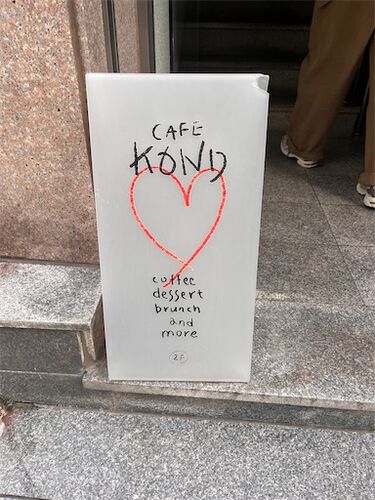 CAFE
KOND
coffee
dessert
brunch
and
more
2F